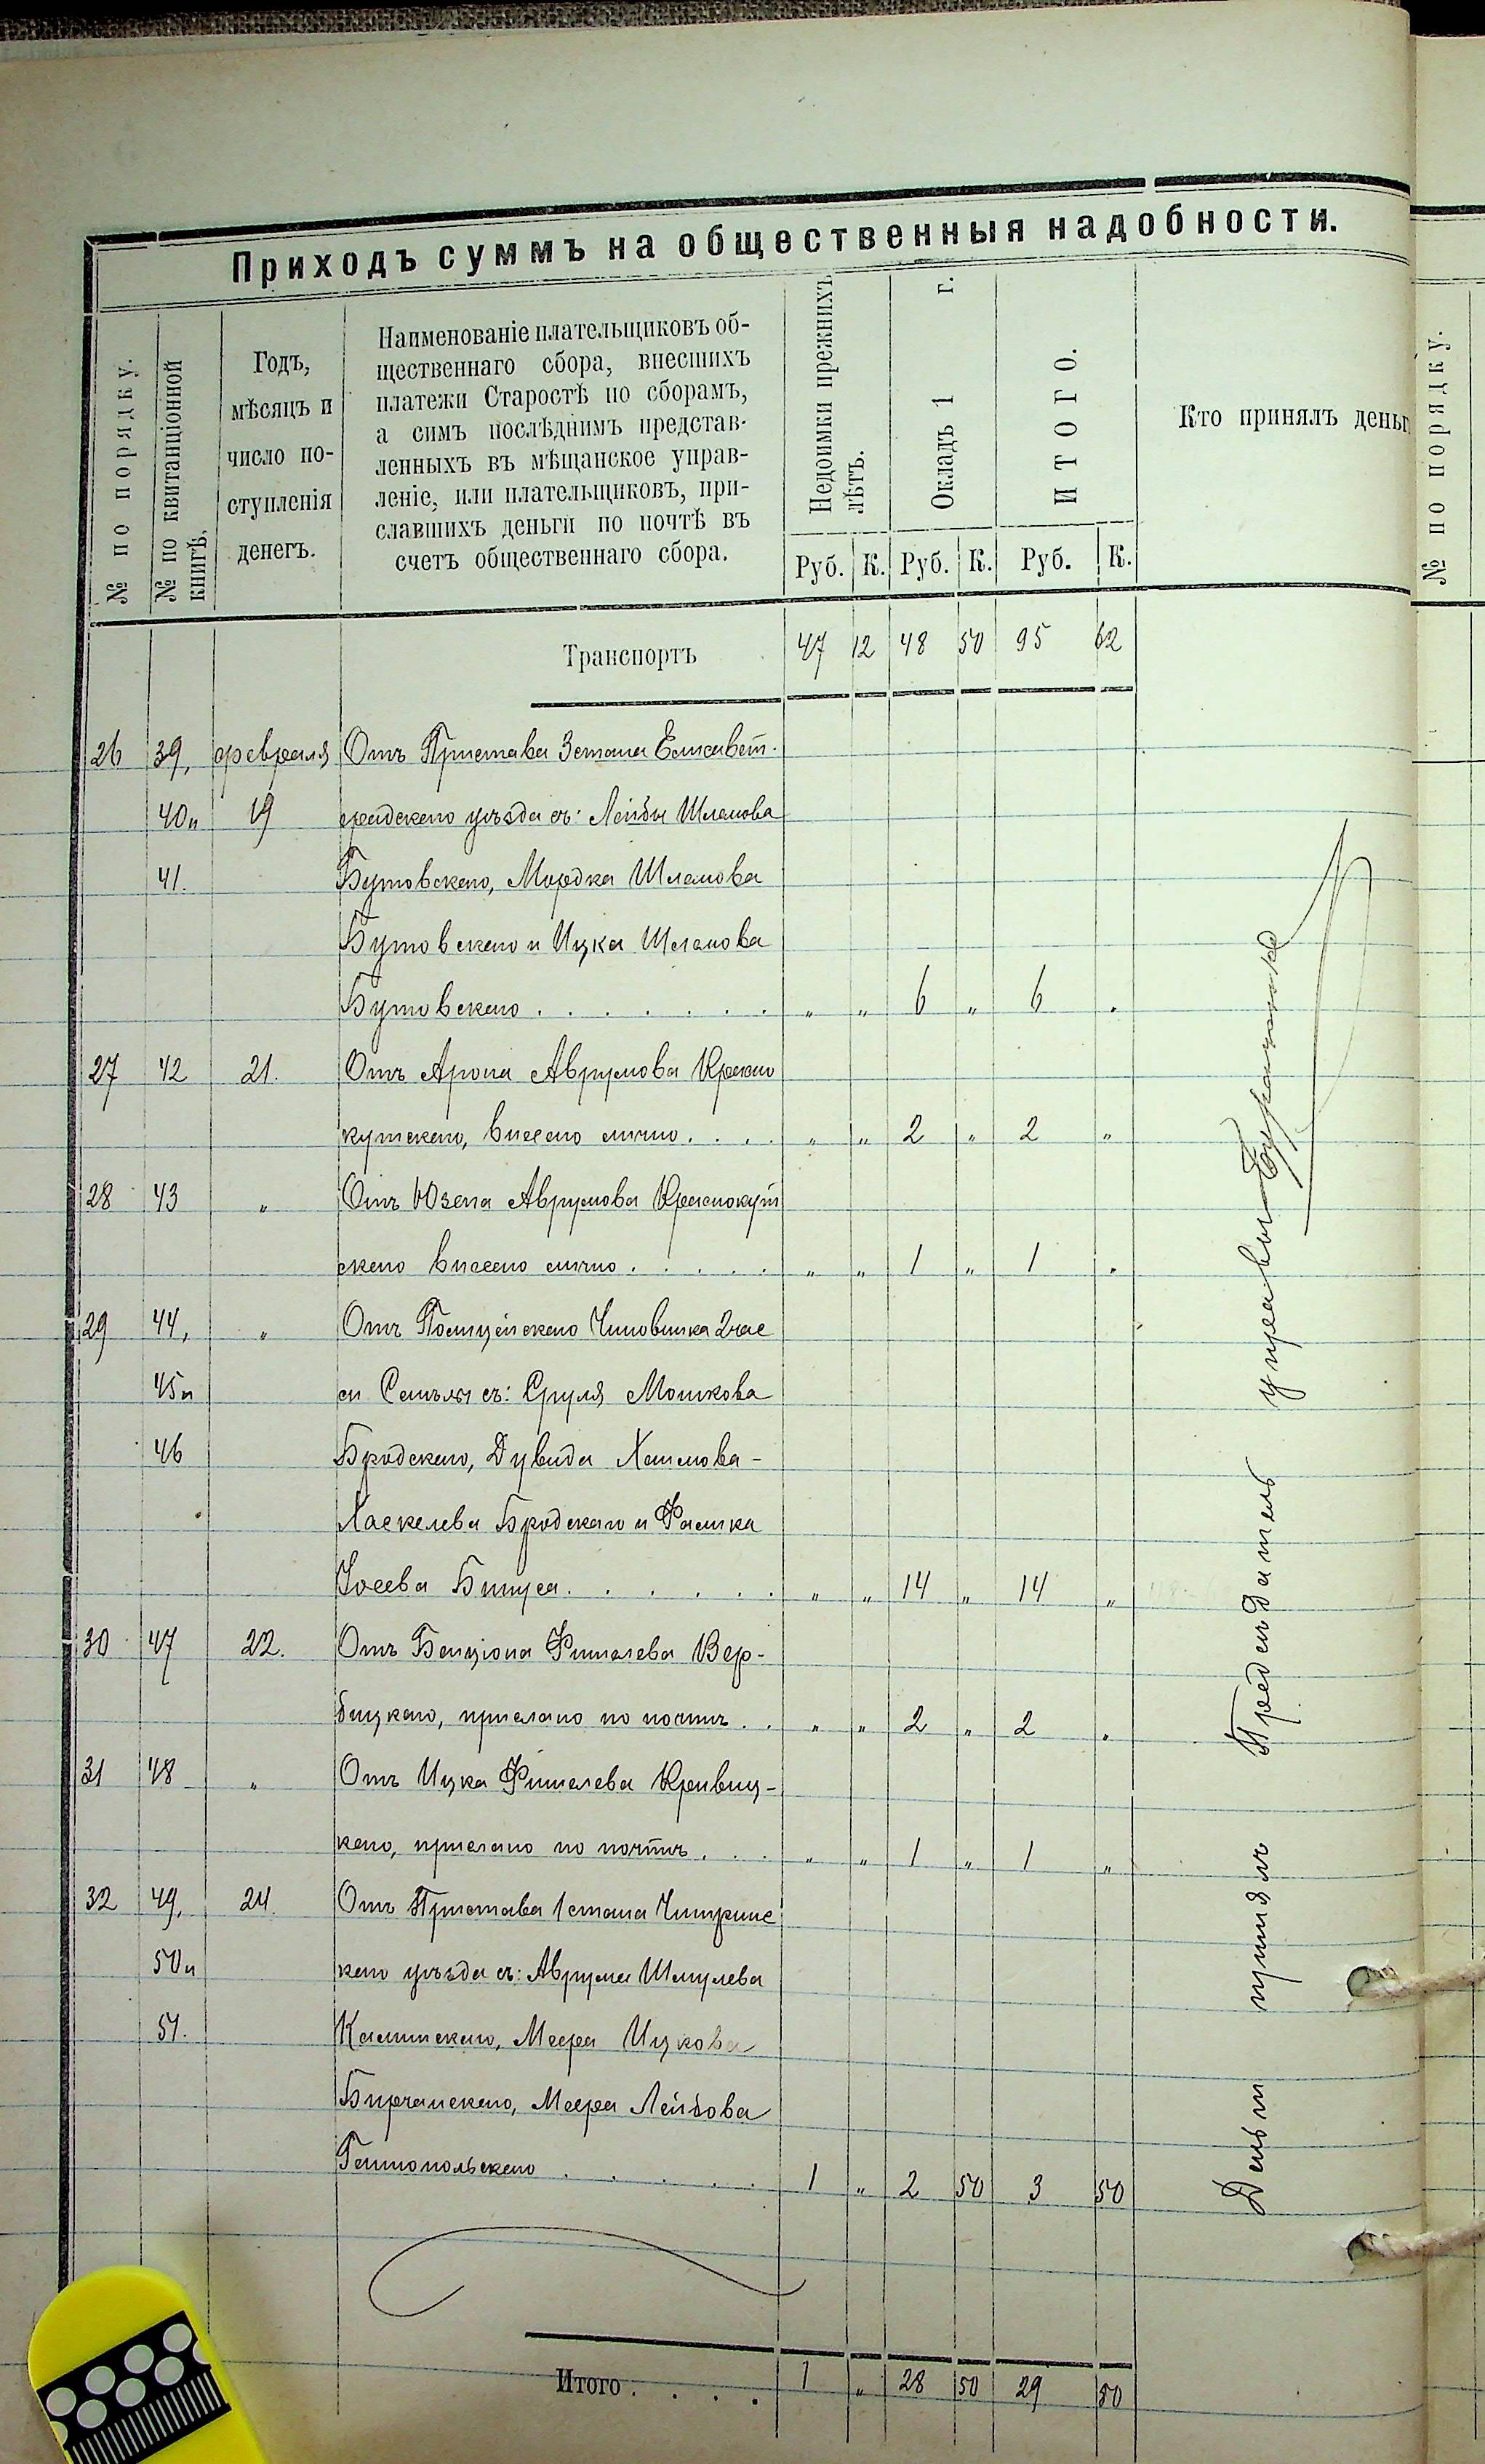 Приходъ суммъ на общественныя надобности.
№ по порядку.
№ по квитанціонной
книгѣ.
Годъ,
мѣсяцъ и
число по-
ступленія
денегъ.
Наименованіе плательщиковъ об-
щественнаго сбора, внесшихъ
платежи Старостѣ по сборамъ,
а симъ послѣднимъ представ-
ленныхъ въ мѣщанское управ-
леніе, или плательщиковъ, при-
славшихъ деньги по почтѣ въ
счетъ общественнаго сбора.
Недоимки прежнихъ
лѣтъ.
Окладъ 1 г.
ИТОГО.
Кто принялъ деньг
№ по порядку.
Руб. К. Руб. К. Руб. К.
Транспортъ 47 12 48 50 95 62
26 39, февраля Отъ Пристава 3 стана Елисавет-
40 и 19 градскаго уѣзда съ: Лейбы Шлемова
41. Бутовскаго, Мордка Шлемова
Бутовскаго и Ицка Шлемова
Бутовскаго . . . . . . . „ „ 6 „ 6 „
27 42 21. Отъ Арона Аврумова Красно
кутскаго, внесено лично . . . . „ „ 2 „ 2 „
28 43 „ Отъ Юзепа Аврумова Краснокут
скаго внесено лично . . . . . „ „ 1 „ 1 „
29 44, „ Отъ Полицейскаго Чиновника 2 час
45 и си Смѣлы съ: Сруля Мошкова
46 Бродскаго, Дувида Хаимова-
Хаскелева Бродскаго и Фалика
Іосева . . . . . . „ „ 14 „ 14 „
30 47 22. Отъ Бенціона Фишелева Вер-
бицкаго, прислано по почтѣ . . „ „ 2 „ 2 „
31 48 „ Отъ Ицка Фишелева Кривиц-
каго, прислано по почтѣ . . . „ „ 1 „ 1 „
32 49, 24. Отъ Пристава 1 стана Чигринс
50 и каго уѣзда съ: Аврума Шмулева
51. Калинскаго, Меера Ицкова
Бирчанскаго, Меера Лейбова
. . . . . 1 „ 2 50 3 50
Итого . . . . 1 „ 28 50 29 50
Деньги принялъ Предсѣдатель управы